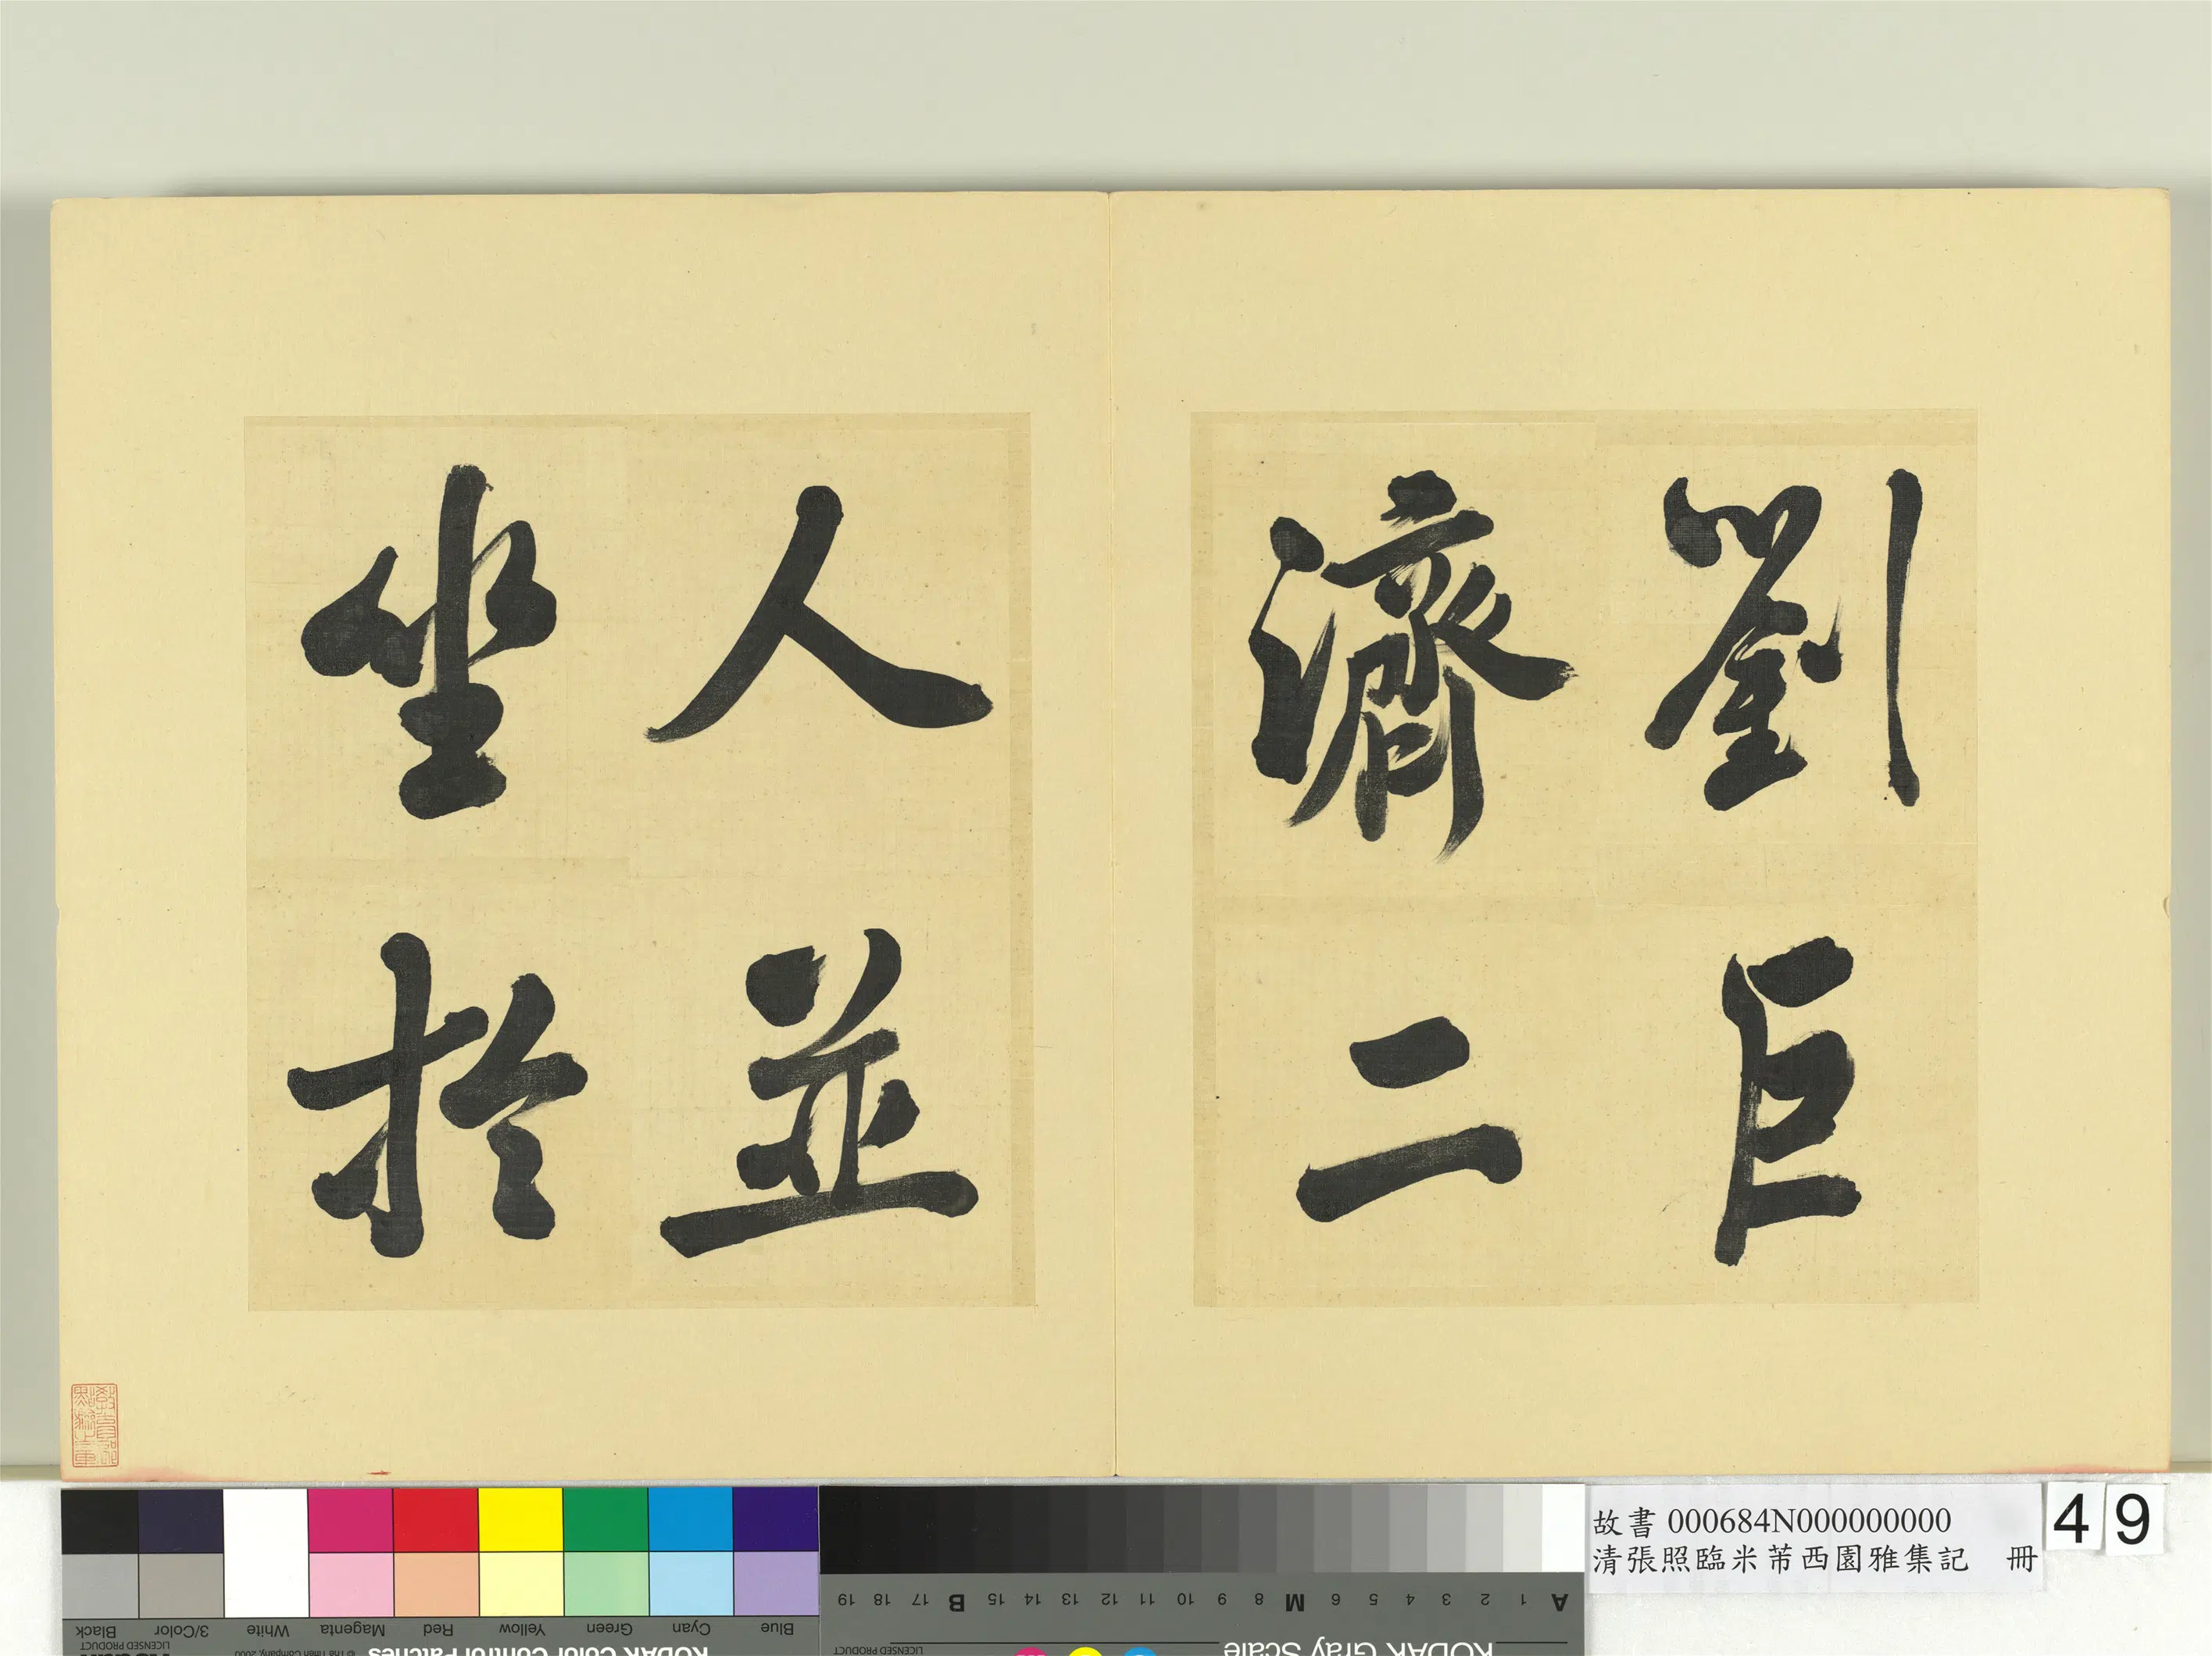 劉巨
濟二
人並
坐於
故書 000684N000000000
清張照臨米芾西園雅集記 冊
49
Black 3/Color White Magenta Red Yellow Green Cyan Blue
LICENSED PRODUCT
© The Tiffen Company, 2000
KODAK Color Control Patches
A 1 2 3 4 5 6 M 8 9 10 11 12 13 14 15 B 17 18 19
KODAK Gray Scale
LICENSED PRODUCT